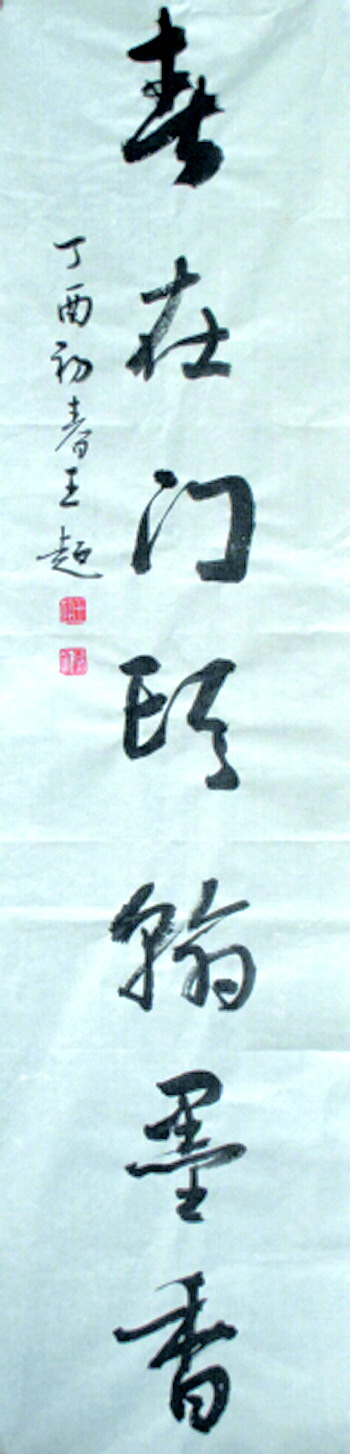 春在门頭翰墨香
丁酉初春王